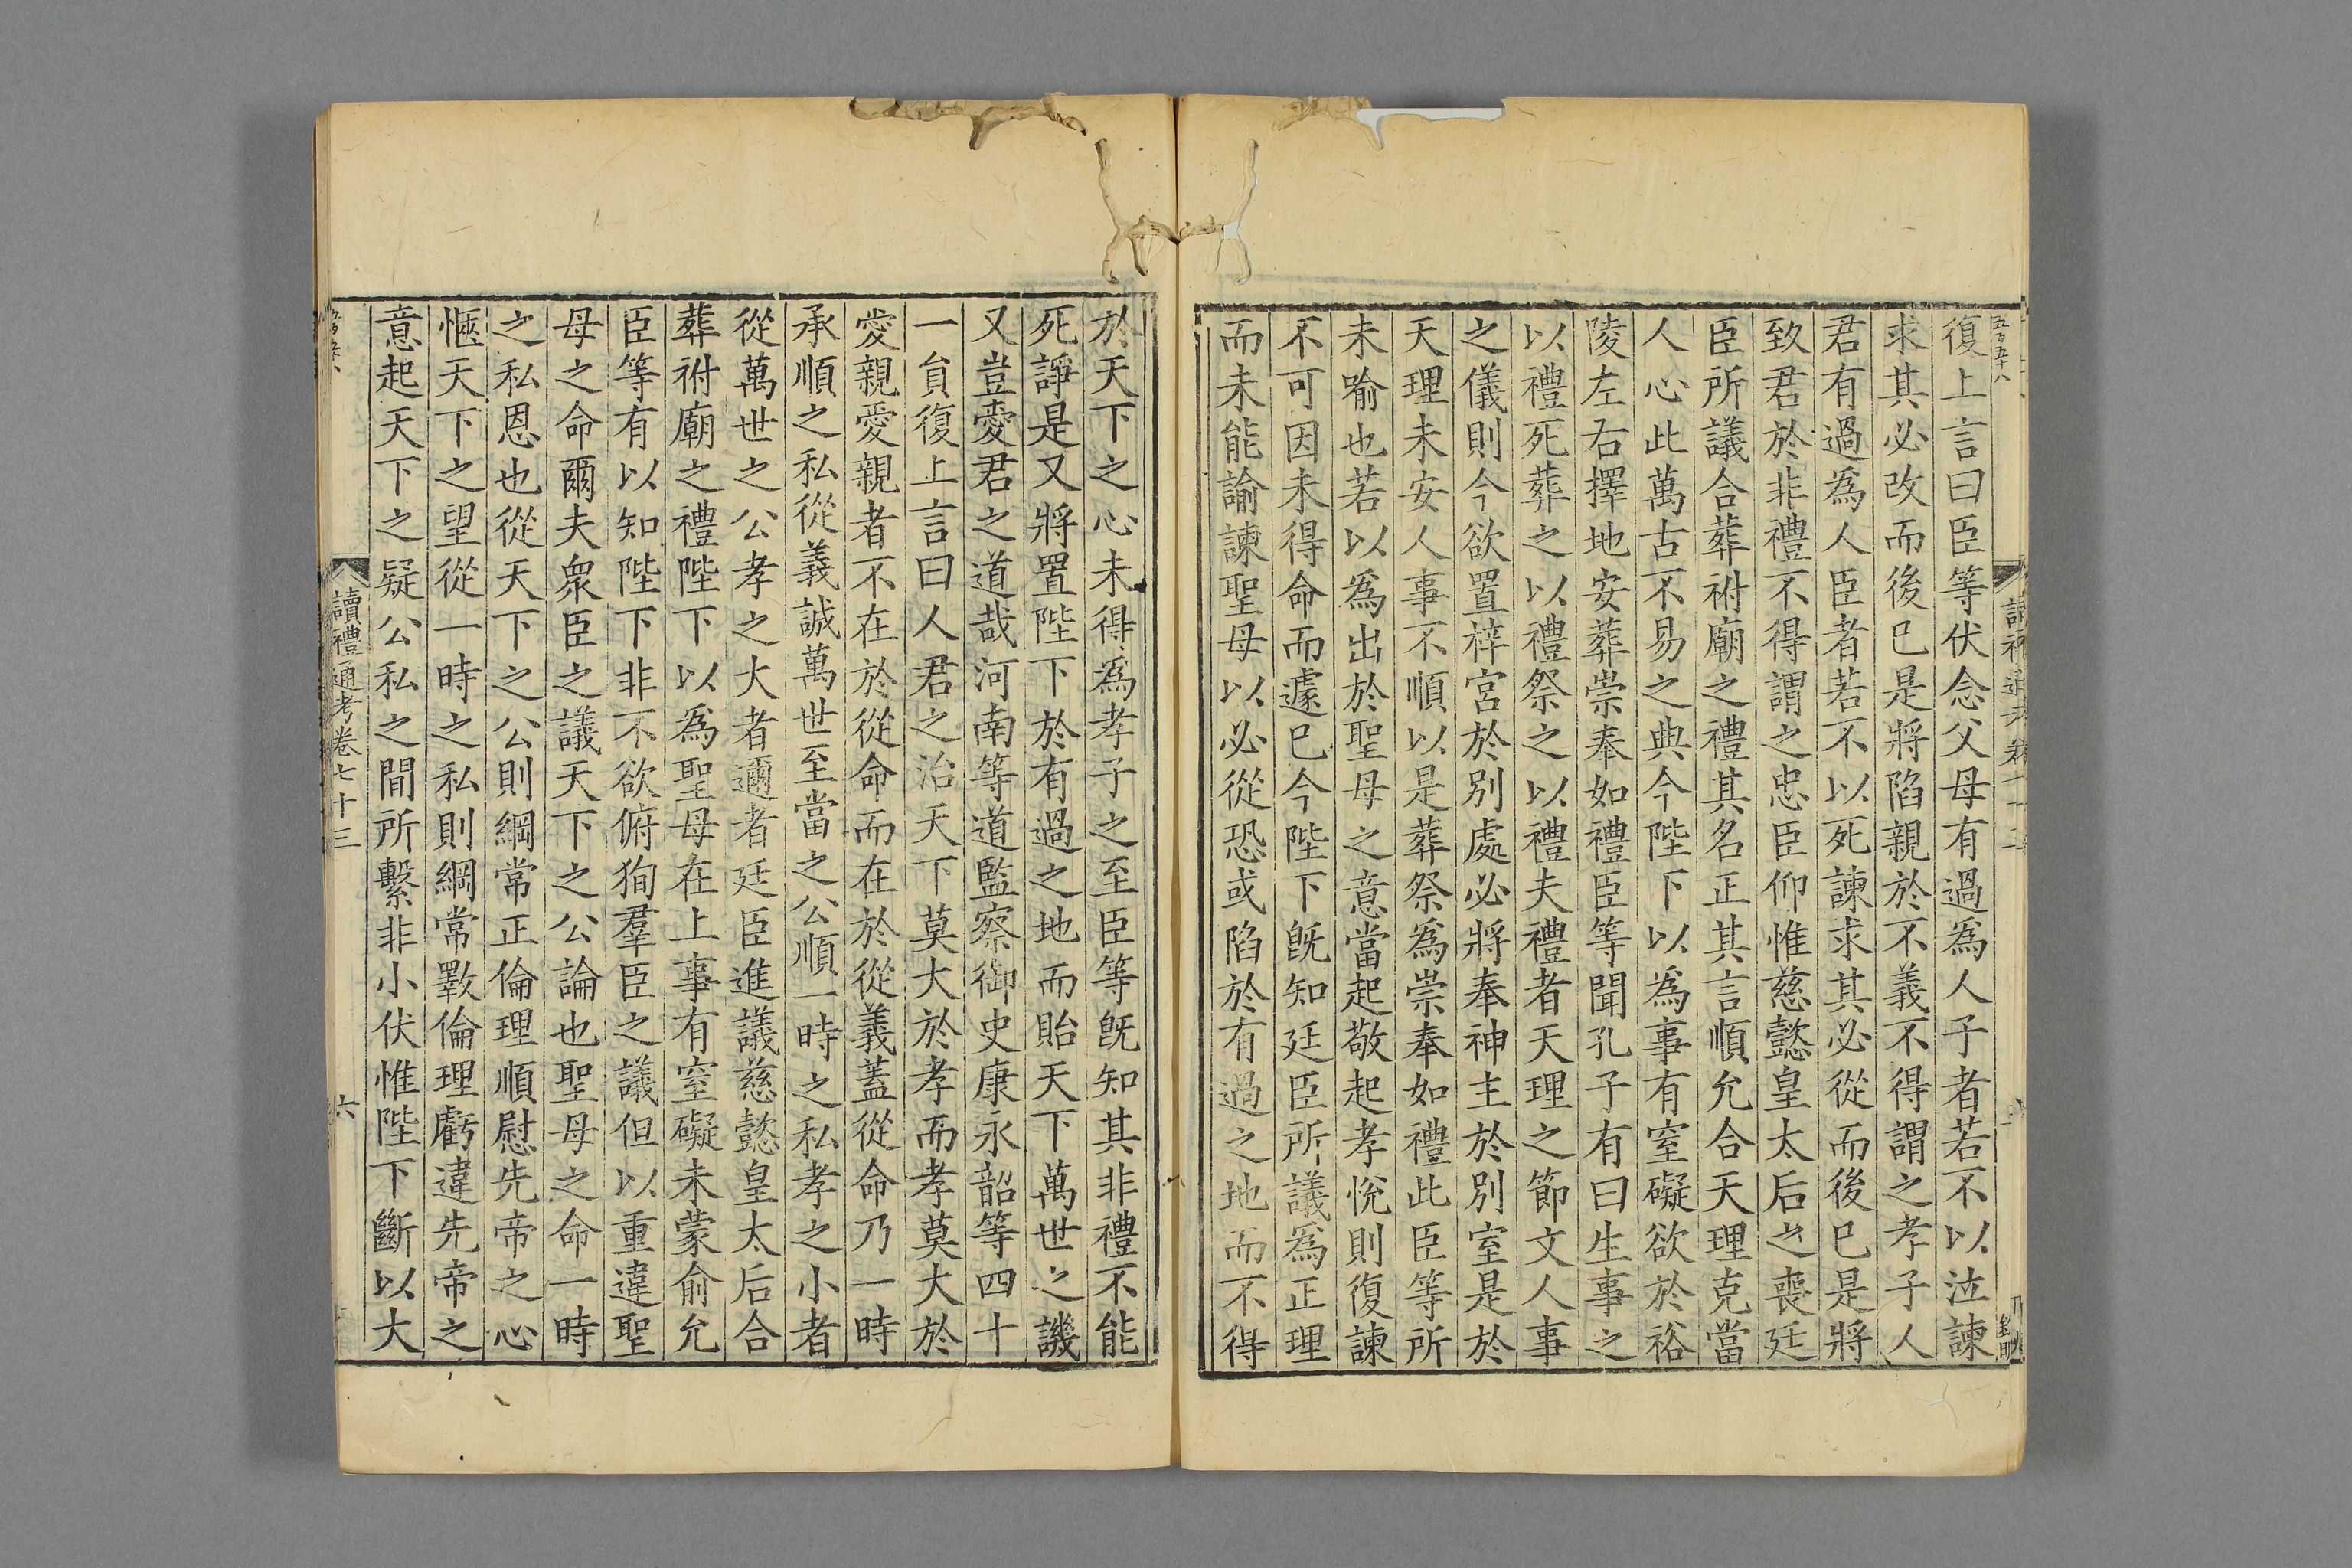 復上言曰臣等伏念父母有過為人子者若不以泣諫
求其必改而後已是將陷親於不義不得謂之孝子人
君有過為人臣者若不以死諫求其必從而後已是將
致君於非禮不得謂之忠臣仰惟慈懿皇太后之喪廷
臣所議合葬祔廟之禮其名正其言順允合天理克當
人心此萬古不易之典今陛下以為事有窒礙欲於裕
陵左右擇地安葬崇奉如禮臣等聞孔子有曰生事之
以禮死葬之以禮祭之以禮夫禮者天理之節文人事
之儀則今欲置梓宮於別處必將奉神主於別室是於
天理未安人事不順以是葬祭為崇奉如禮此臣等所
未喻也若以為出於聖母之意當起敬起孝悅則復諫
不可因未得命而遽已今陛下旣知廷臣所議為正理
而未能諭諫聖母以必從恐或陷於有過之地而不得
於天下之心未得為孝子之至臣等旣知其非禮不能
死諍是又將置陛下於有過之地而貽天下萬世之譏
又豈愛君之道哉河南等道監察御史康永韶等四十
一貟復上言曰人君之治天下莫大於孝而孝莫大於
愛親愛親者不在於從命而在於從義蓋從命乃一時
承順之私從義誠萬世至當之公順一時之私孝之小者
從萬世之公孝之大者邇者廷臣進議慈懿皇太后合
葬祔廟之禮陛下以為聖母在上事有窒礙未蒙俞允
臣等有以知陛下非不欲俯狥羣臣之議但以重違聖
母之命爾夫衆臣之議天下之公論也聖母之命一時
之私恩也從天下之公則綱常正倫理順慰先帝之心
愜天下之望從一時之私則綱常斁倫理虧違先帝之
意起天下之疑公私之間所繫非小伏惟陛下斷以大
讀禮通考卷七十三
六